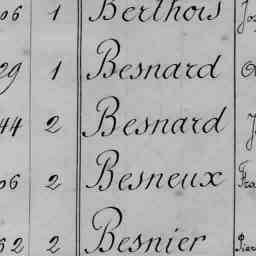 06 1 Berthois
29 1 Besnard
44 2 Besnard
06 2 Besneux Fra
62 2 Besnier Pier